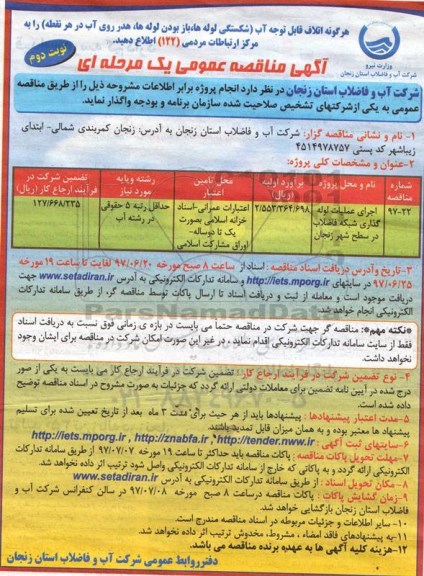 هرگونه اتلاف قابل توجه آب (شکستگی لوله ها،باز بودن لوله ها، هدر روی آب در هر نقطه) را به
مرکز ارتباطات مردمی (۱۲۲) اطلاع دهید.
وزارت نیرو
شرکت آب و فاضلاب استان زنجان
نوبت دوم
آگهی مناقصه عمومی یک مرحله ای
شرکت آب و فاضلاب استان زنجان در نظر دارد انجام پروژه برابر اطلاعات مشروحه ذیل را از طریق مناقصه
عمومی به یکی ازشرکتهای تشخیص صلاحیت شده سازمان برنامه و بودجه واگذار نماید.
۱- نام و نشانی مناقصه گزار: شرکت آب و فاضلاب استان زنجان به آدرس: زنجان کمربندی شمالی- ابتدای
زیباشهر کد پستی ۴۵۱۴۹۷۸۷۵۷
۲-عنوان و مشخصات کلی پروژه:
شماره مناقصه
نام و محل پروژه
برآورد اولیه (ریال)
محل تامین اعتبار
رشته و پایه مورد نیاز
تضمین شرکت در فرآیند ارجاع کار (ریال)
۹۷-۲۲
اجرای عملیات لوله گذاری شبکه فاضلاب در سطح شهر زنجان
۲/۵۵۳/۳۶۴/۶۹۸
اعتبارات عمرانی-اسناد خزانه اسلامی بصورت یک تا دوساله- اوراق مشارکت اسلامی
حداقل رتبه ۵ حقوقی در رشته آب
۱۲۷/۶۶۸/۲۳۵
۳-تاریخ وآدرس دریافت اسناد مناقصه : اسناد از ساعت ۸ صبح مورخه ۹۷/۰۶/۲۰ لغایت تا ساعت ۱۹ مورخه
۹۷/۰۶/۲۵ در سایتهای http://iets.mporg.ir و سامانه تدارکات الکترونیکی به آدرس www.setadiran.ir جهت
دریافت موجود است و معامله از ثبت و دریافت اسناد تا ارسال پاکات توسط مناقصه گر، از طریق سامانه تدارکات
الکترونیکی انجام خواهد شد.
*نکته مهم*: مناقصه گر جهت شرکت در مناقصه حتماً می بایست در بازه ی زمانی فوق نسبت به دریافت اسناد
فقط از سایت سامانه تدارکات الکترونیکی اقدام نماید ، در غیر این صورت امکان شرکت در مناقصه برای ایشان وجود
نخواهد داشت.
۴- نوع تضمین شرکت در فرآیند ارجاع کار : تضمین شرکت در فرآیند ارجاع کار می بایست به یکی از صور
درج شده در آیین نامه تضمین برای معاملات دولتی ارائه گردد که جزئیات به صورت مشروح در اسناد مناقصه توضیح
داده شده است.
۵-مدت اعتبار پیشنهادها : پیشنهادها باید از هر حیث برای مدت ۳ ماه بعد از تاریخ تعیین شده برای تسلیم
پیشنهاد ها معتبر بوده و به همان میزان قابل تمدید باشد.
۶-سایتهای ثبت آگهی : http://iets.mporg.ir , http://znabfa.ir , http://tender.nww.ir
۷-مهلت تحویل پاکات : پاکات مناقصه باید حداکثر تا ساعت ۱۹ مورخه ۹۷/۰۷/۰۷ از طریق سامانه تدارکات
الکترونیکی ارائه گردد و به پاکاتی که خارج از سامانه تدارکات الکترونیکی واصل شود ترتیب اثر داده نخواهد شد.
۸-مکان تحویل اسناد : از طریق سامانه تدارکات الکترونیکی به آدرس www.setadiran.ir
۹-زمان گشایش پاکات : پاکات مناقصه درساعت ۸ صبح مورخه ۹۷/۰۷/۰۸ در سالن کنفرانس شرکت آب و
فاضلاب استان زنجان بازگشایی خواهد شد.
۱۰- سایر اطلاعات و جزئیات مربوطه در اسناد مناقصه مندرج است.
۱۱-به پیشنهادهای فاقد امضاء ، مشروط، مخدوش ترتیب اثر داده نخواهد شد.
۱۲-هزینه کلیه آگهی ها به عهده برنده مناقصه می باشد.
دفترروابط عمومی شرکت آب و فاضلاب استان زنجان